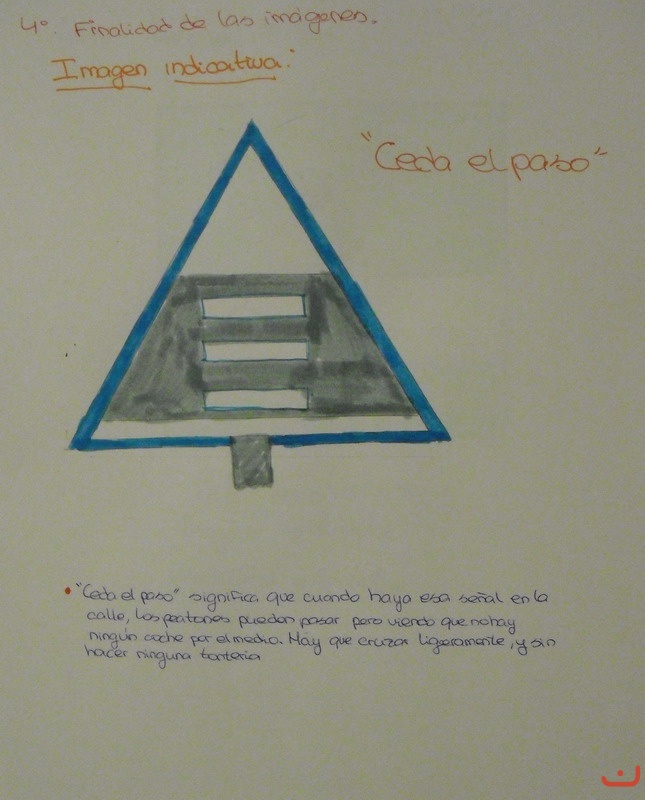 4º. Finalidad de las imágenes.
Imagen indicativa:
"Ceda el paso"
• "Ceda el paso" significa que cuando haya esa señal en la
calle, los peatones pueden pasar pero viendo que no hay
ningún coche por el medio. Hay que cruzar ligeramente, y sin
hacer ninguna tontería